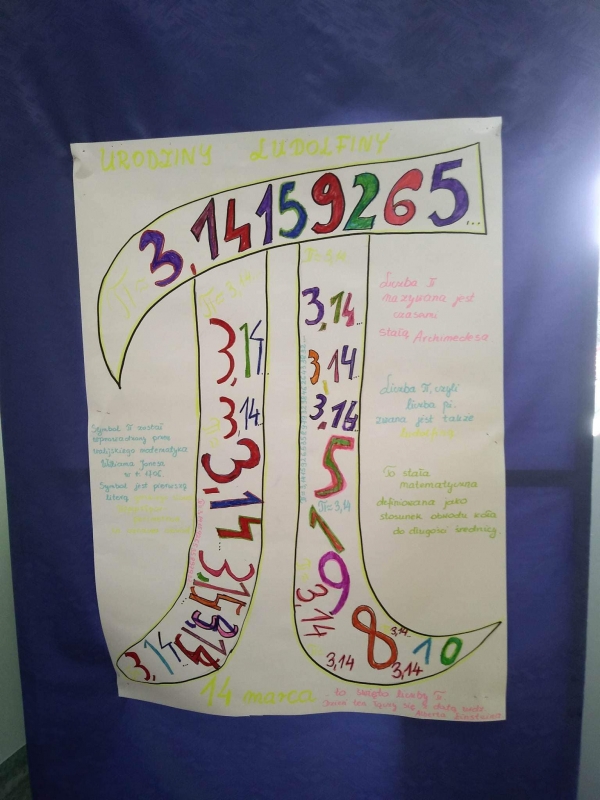 URODZINY LUDOLFINY
π=3,14159265...
π=3,14...
3,14...
3,14...
3,14
3,14
3,14
3,14
3,14...
π=3,14
3,14...
3,14...
3,16...
5
π=3,14
1
9
3,14
8
3,14...
3,14
3,14
10
Liczba π
nazywana jest
czasami
stałą Archimedesa
Liczba π, czyli
liczba pi.
zwana jest także
ludolfiną
To stała
matematyczna
definiowana jako
stosunek obwodu koła
do długości średnicy.
Symbol π został
wprowadzony przez
walijskiego matematyka
Williama Jonesa
w r. 1706.
Symbol jest pierwszą
literą
14 marca - to święto liczby π.
Dzień ten łączy się z datą
Alberta Einsteina